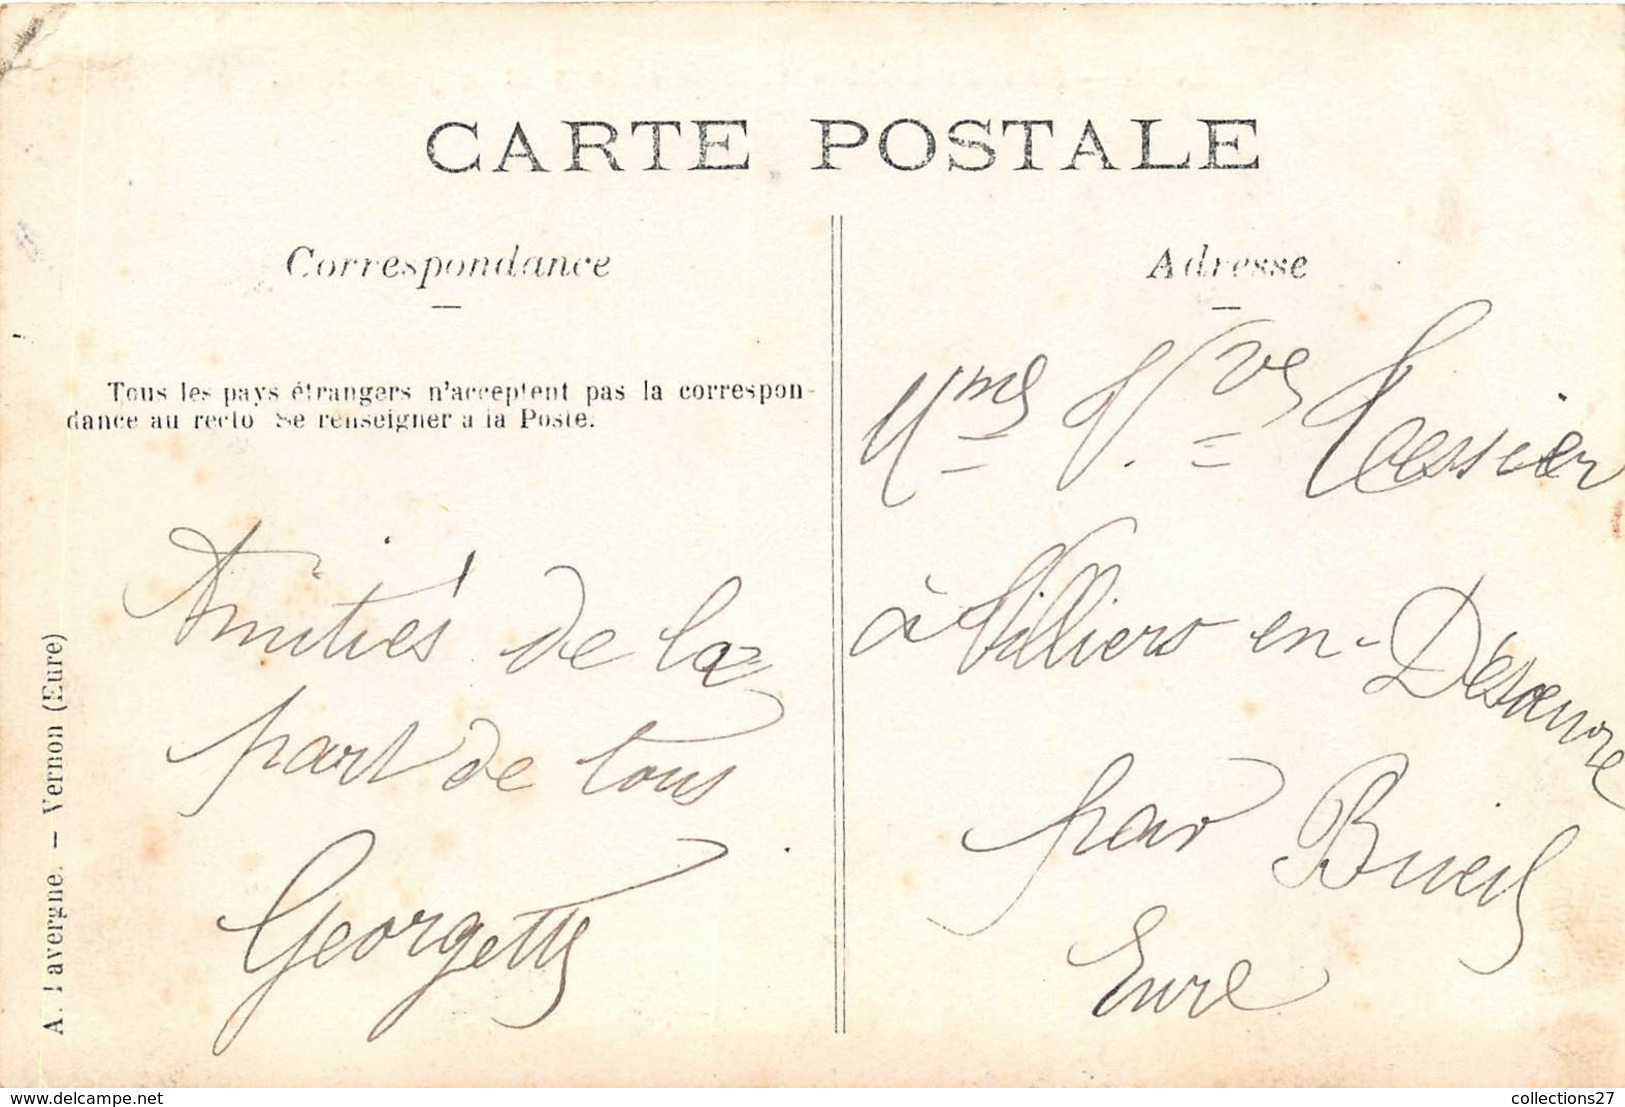 CARTE POSTALE
Correspondance
Tous les pays étrangers n'acceptent pas la correspon-
dance au recto Se renseigner à la Poste.
Amitiés de la
part de tous
Georgette
A. Lavergne. — Vernon (Eure)
Adresse
Mme Vve Tessier
à Villiers en-Désœuvre
par Bueil
Eure
delcampe.net
collections27